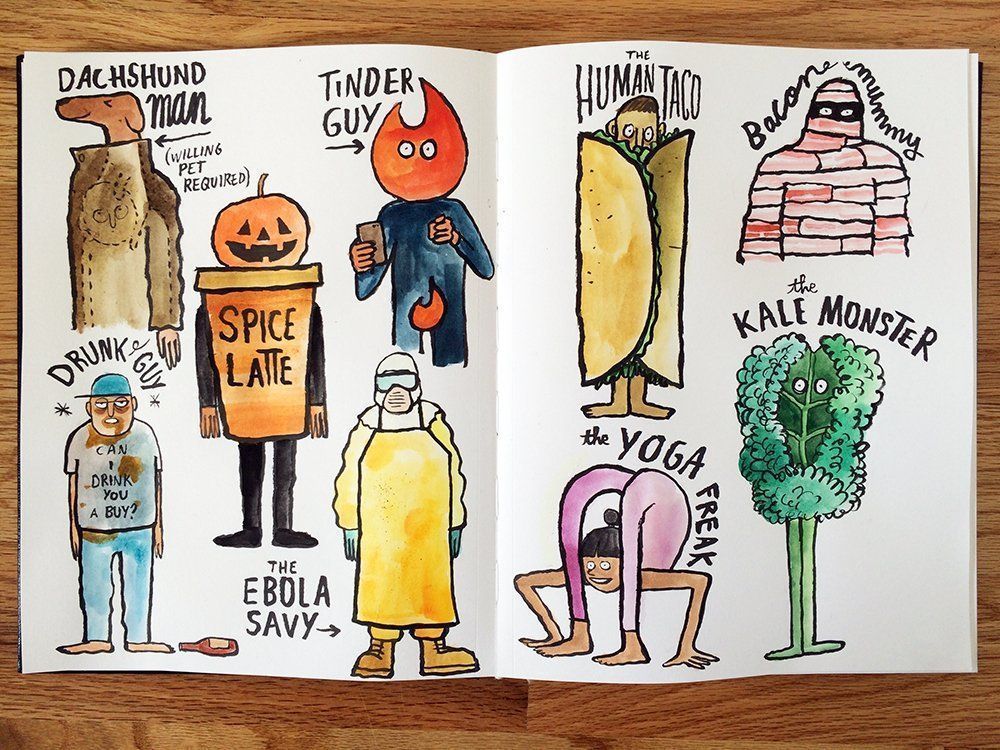 DACHSHUND
man
(WILLING
PET
REQUIRED)
TINDER
GUY
SPICE
LATTE
DRUNK GUY
CAN
I
DRINK
YOU
A BUY?
THE
EBOLA
SAVY
THE
HUMAN TACO
Bacone mummy
the
KALE MONSTER
the YOGA FREAK